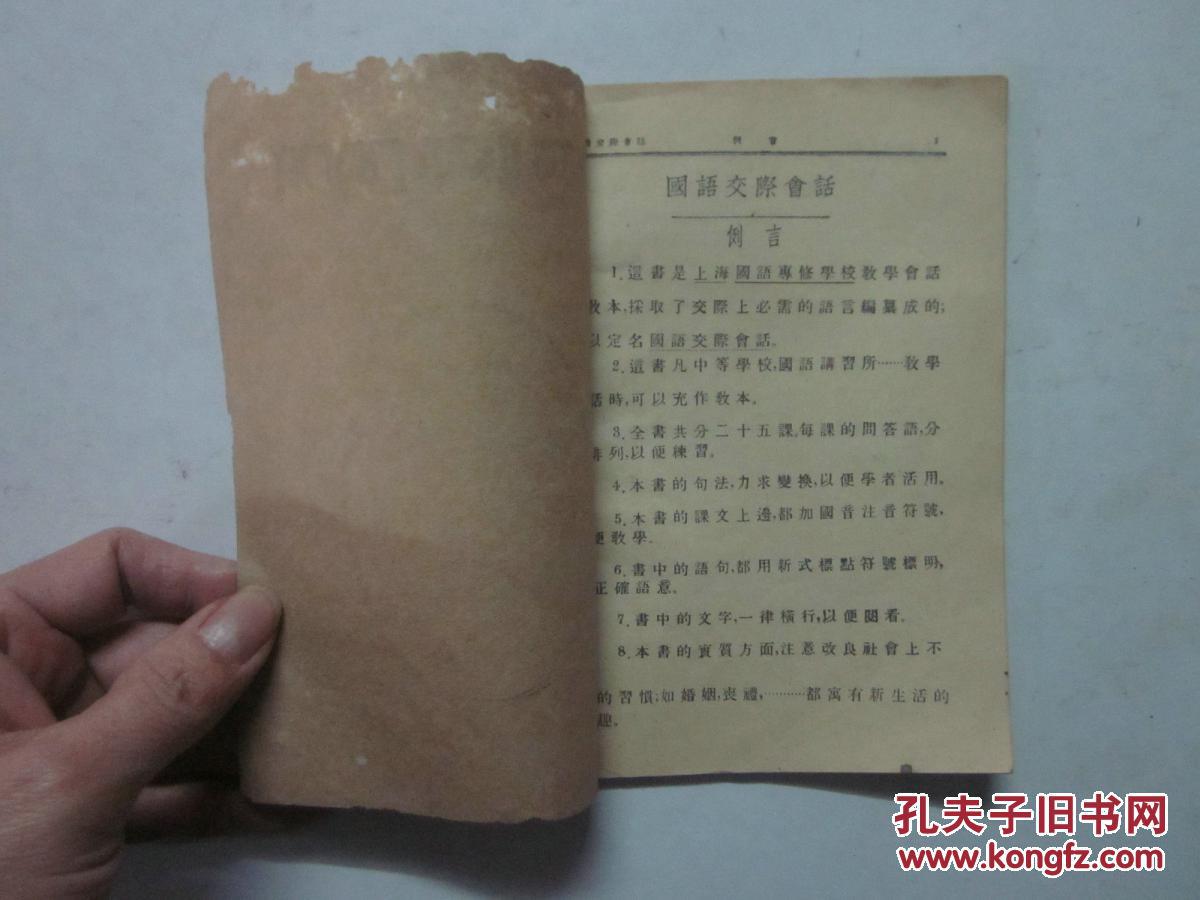 交際會話 例言 1
國語交際會話
例言
1.這書是上海國語專修學校敎學會話
敎本,採取了交際上必需的語言編纂成的;
以定名國語交際會話。
2.這書凡中等學校,國語講習所……敎學
話時,可以充作敎本。
3.全書共分二十五課,每課的問答語,分
排列,以便練習。
4.本書的句法,力求變換,以便學者活用。
5.本書的課文上邊,都加國音注音符號,
便敎學。
6.書中的語句,都用新式標點符號標明,
正確語意。
7.書中的文字,一律橫行,以便閱看。
8.本書的實質方面,注意改良社會上不
的習慣;如婚姻,喪禮,………都寓有新生活的
趣。
孔夫子旧书网
www.kongfz.com